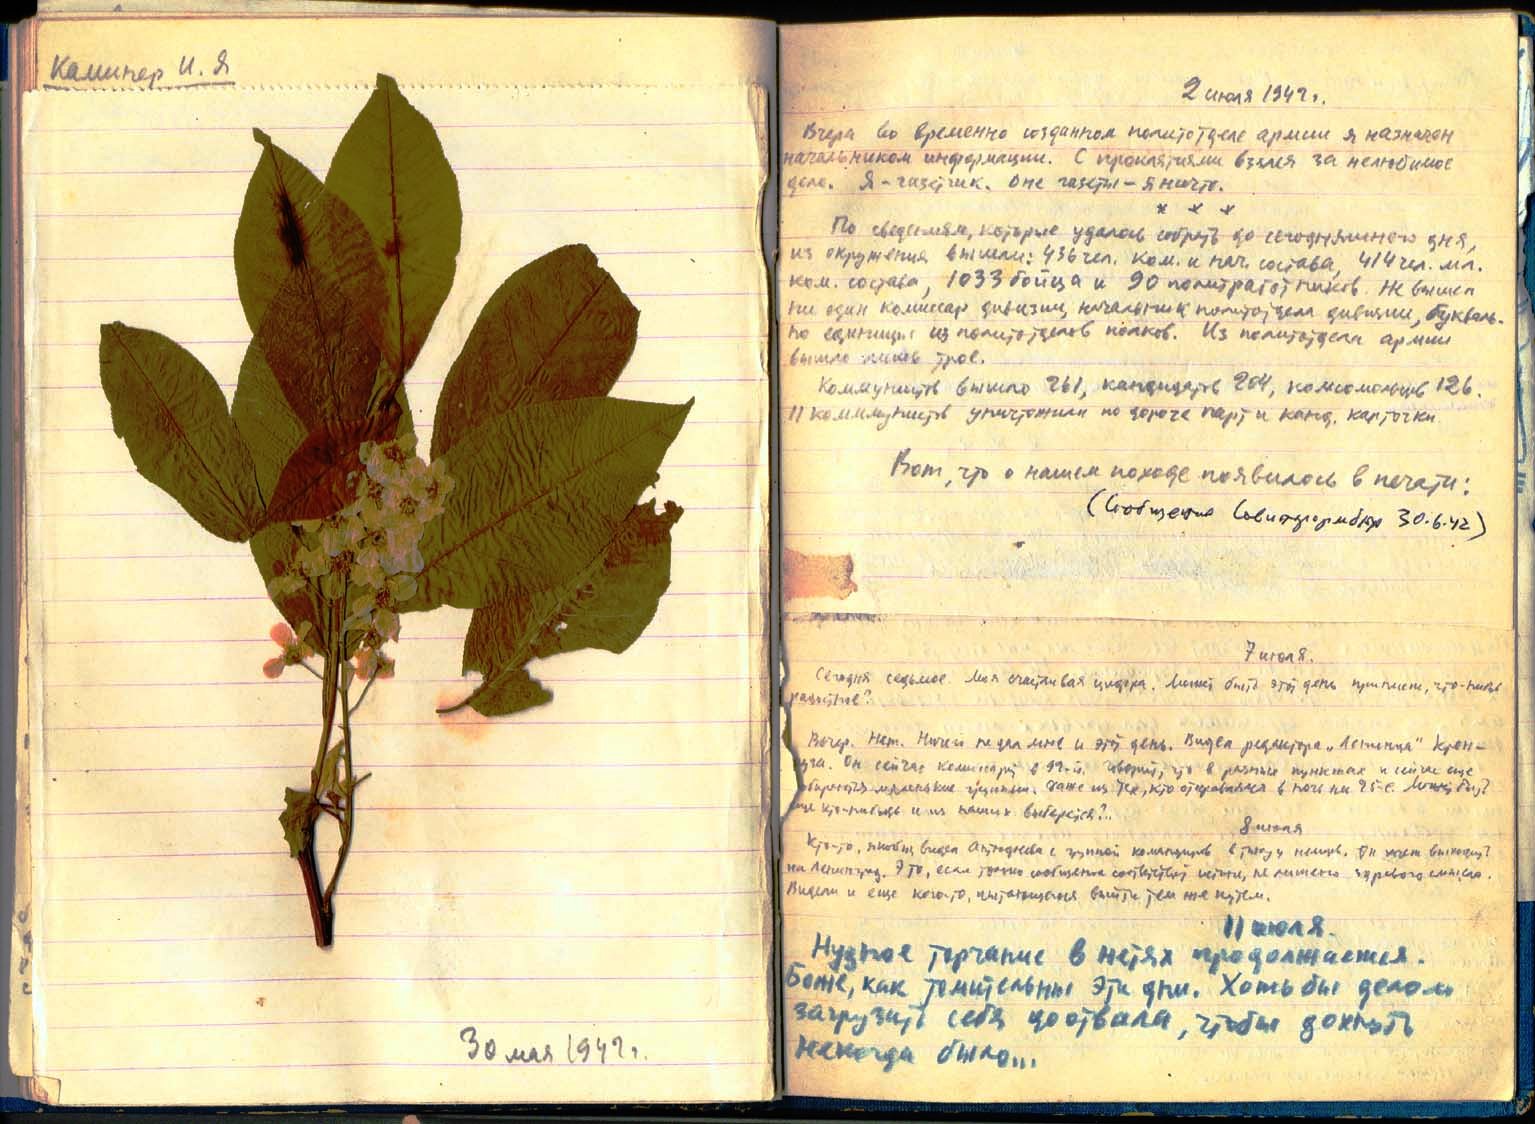 Каминер И. Я
30 мая 1942 г.
2 июля 1942 г.
Вчера во временно созданном политотделе армии я назначен
начальником информации. С проклятиями взялся за нелюбимое
дело. Я – газетчик. Вне газеты – я ничто.
* * *
По сведениям, которые удалось собрать до сегодняшнего дня,
из окружения вышли: 436 чел. ком. и нач. состава, 414 чел. мл.
ком. состава, 1033 бойца и 90 политработников. Не вышел
ни один комиссар дивизии, начальник политотдела дивизии, букваль-
но единицы из политотделов полков. Из политотдела армии
вышло лишь трое.
Коммунистов вышло 261, кандидатов 204, комсомольцев 126.
11 коммунистов уничтожили по дороге парт и канд. карточки
Вот, что о нашем походе появилось в печати:
(Сообщение Совинформбюро 30.6.42)
7 июля.
Сегодня седьмое. Моя счастливая цифра. Может быть этот день принесет, что-нибудь
радостное?
Вечер. Нет. Ничего не дал мне и этот день. Видел редактора „Ленинца"
Он сейчас комиссарит в 92-й. Говорит, что в разных пунктах и сейчас еще
собираются маленькие группки. Даже из тех, кто отправился в ночь на 25-е. Может быть
еще кто-нибудь и из наших выберется?..
8 июля
Кто-то, якобы, видел с группой командиров в тылу у немцев. Он хочет выходить
на Ленинград. Это, если только сообщение соответствует истине, не лишено здравого смысла.
Видели и еще кого-то, пытающегося выйти тем же путем.
11 июля.
Нудное торчание в нетях продолжается.
Боже, как томительны эти дни. Хоть бы делом
загрузить себя до отвала, чтобы дохнуть
некогда было...